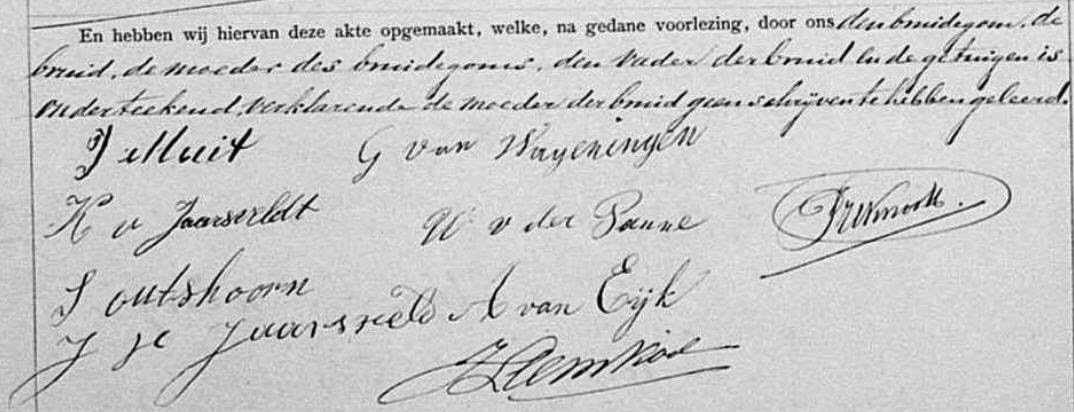 En hebben wij hiervan deze akte opgemaakt, welke, na gedane voorlezing, door ons den bruidegom, de
bruid, de moeder des bruidegoms, den vader der bruid en de getuigen is
onderteekend, verklarende de moeder der bruid geen schrijven te hebben geleerd.
J Muit G van Wageningen
K v Jaarsveldt W v der Panne
J outshoorn
J Jaarsveld A van Eijk